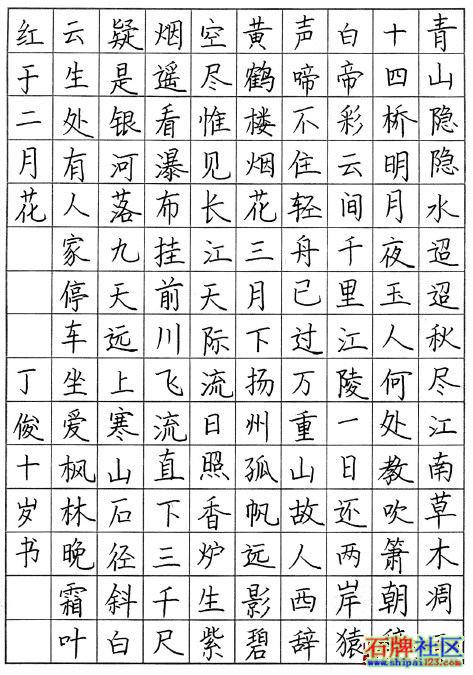 青山隐隐水迢迢秋尽江南草木凋
十四桥明月夜玉人何处教吹箫朝
白帝彩云间千里江陵一日还两岸猿
声啼不住轻舟已过万重山故人西辞
黄鹤楼烟花三月下扬州孤帆远影碧
空尽惟见长江天际流日照香炉生紫
烟遥看瀑布挂前川飞流直下三千尺
疑是银河落九天远上寒山石径斜白
云生处有人家停车坐爱枫林晚霜叶
红于二月花 丁俊十岁书
石牌社区
www.shipai123.com